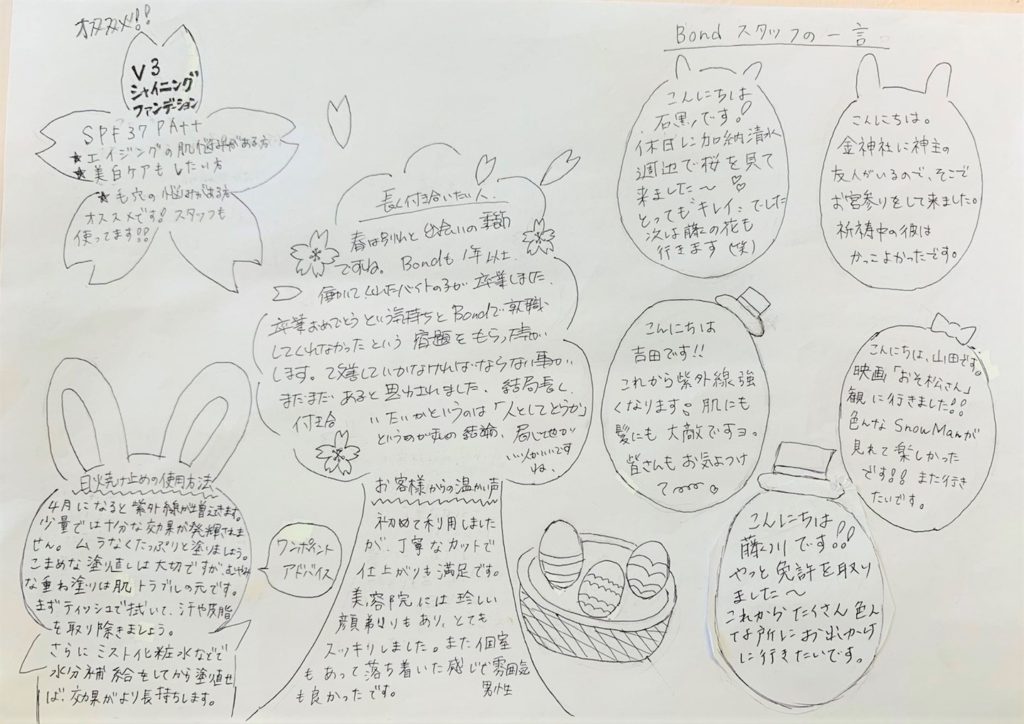 オススメ!!
V3
シャイニング
ファンデーション
SPF37 PA++
★エイジングの肌悩みがある方
★美白ケアもしたい方
★毛穴の悩みがある方
オススメです! スタッフも
使ってます!!
長く付き合いたい人。
春は別れと出会いの季節
ですね。Bondも1年以上
働いてくれたバイトの子が卒業しました。
卒業おめでとうという気持ちとBondで就職
してくれなかったという宿題をもらった気が
します。改善していかなければならない事が
まだまだあると思わされました。結局長く
付き合いたいかというのは「人としてどうか」
というのが私の結論。
いい人がいいです
ね。
日焼け止めの使用方法
4月になると紫外線が増えてきます。
少量では十分な効果が発揮されま
せん。ムラなくたっぷりと塗りましょう。
こまめな塗り直しは大切ですが、むやみ
な重ね塗りは肌トラブルの元です。
まずティッシュで拭いて、汗や皮脂
を取り除きましょう。
さらにミスト化粧水などで
水分補給をしてから塗り直せ
ば、効果がより長持ちします。
ワンポイント
アドバイス
お客様からの温かい声
初めて利用しました
が、丁寧なカットで
仕上がりも満足です。
美容院には珍しい
顔剃りもあり、とても
スッキリしました。また個室
もあって落ち着いた感じで雰囲気
も良かったです。
男性
Bond スタッフの一言
こんにちは
石黒です!
休日に加納清水
週辺で桜を見て
来ました〜♡
とっても"キレイ"でした
次は藤の花も
行きます(笑)
こんにちは。
金神社に神主の
友人がいるので、そこで
お宮参りをして来ました。
祈祷中の彼は
かっこよかったです。
こんにちは
吉田です!!
これから紫外線強
くなります! 肌にも
髪にも大敵ですヨ。
皆さんもお気をつけ
て〜。
こんにちは、山田です。
映画「おそ松さん」
観に行きました!!
色んなSnowManが
見れて楽しかった
です!! また行き
たいです。
こんにちは
藤川です!!
やっと免許を取り
ました〜
これからたくさん色ん
な所にお出かけ
に行きたいです。